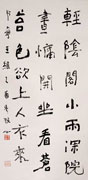 輕陰閣小雨深院
晝慵開坐看蒼
苔色欲上人衣來